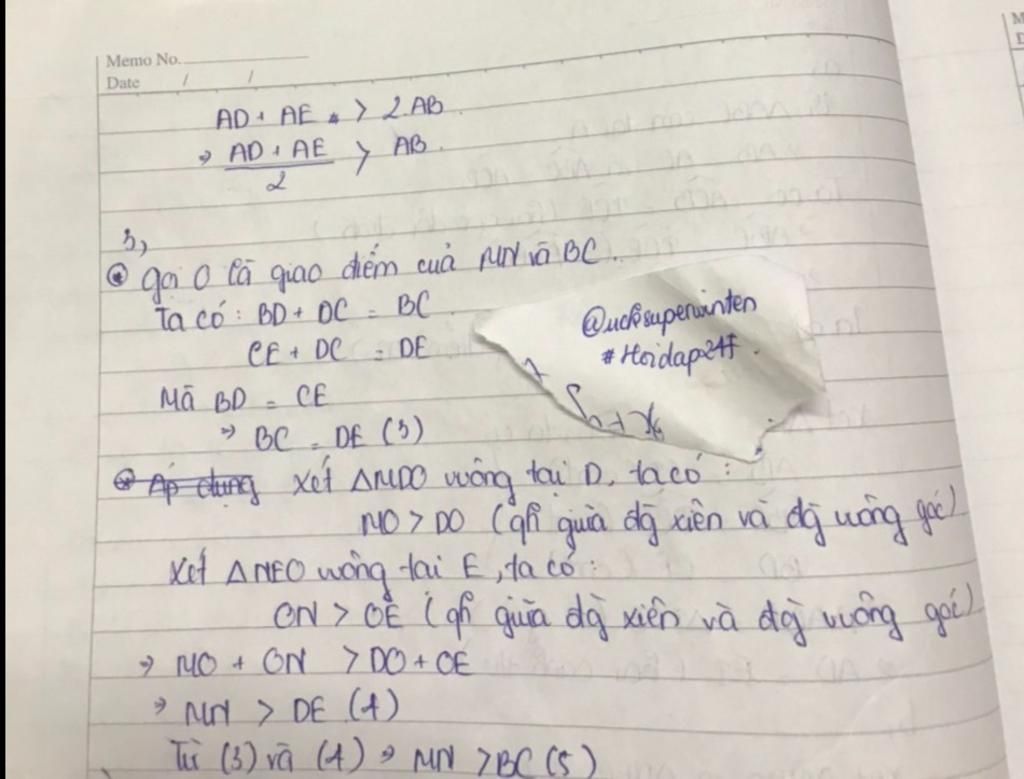 Memo No.
Date / /
AD + AE > 2AB.
⇒ (AD + AE)/2 > AB.
3,
Gọi O là giao điểm của MN và BC.
Ta có: BD + DC = BC
CE + DC = DE
Mà BD = CE
⇒ BC = DE (3)
@ucksuperwinten
#Hoidap247.
Áp dụng Xét ΔMDO vuông tại D, ta có:
MO > DO (qh giữa đg xiên và đg vuông góc)
Xét ΔNEO vuông tại E, ta có:
ON > OE (qh giữa đg xiên và đg vuông góc)
⇒ MO + ON > DO + OE
⇒ MN > DE (4)
Từ (3) và (4) ⇒ MN > BC (5)